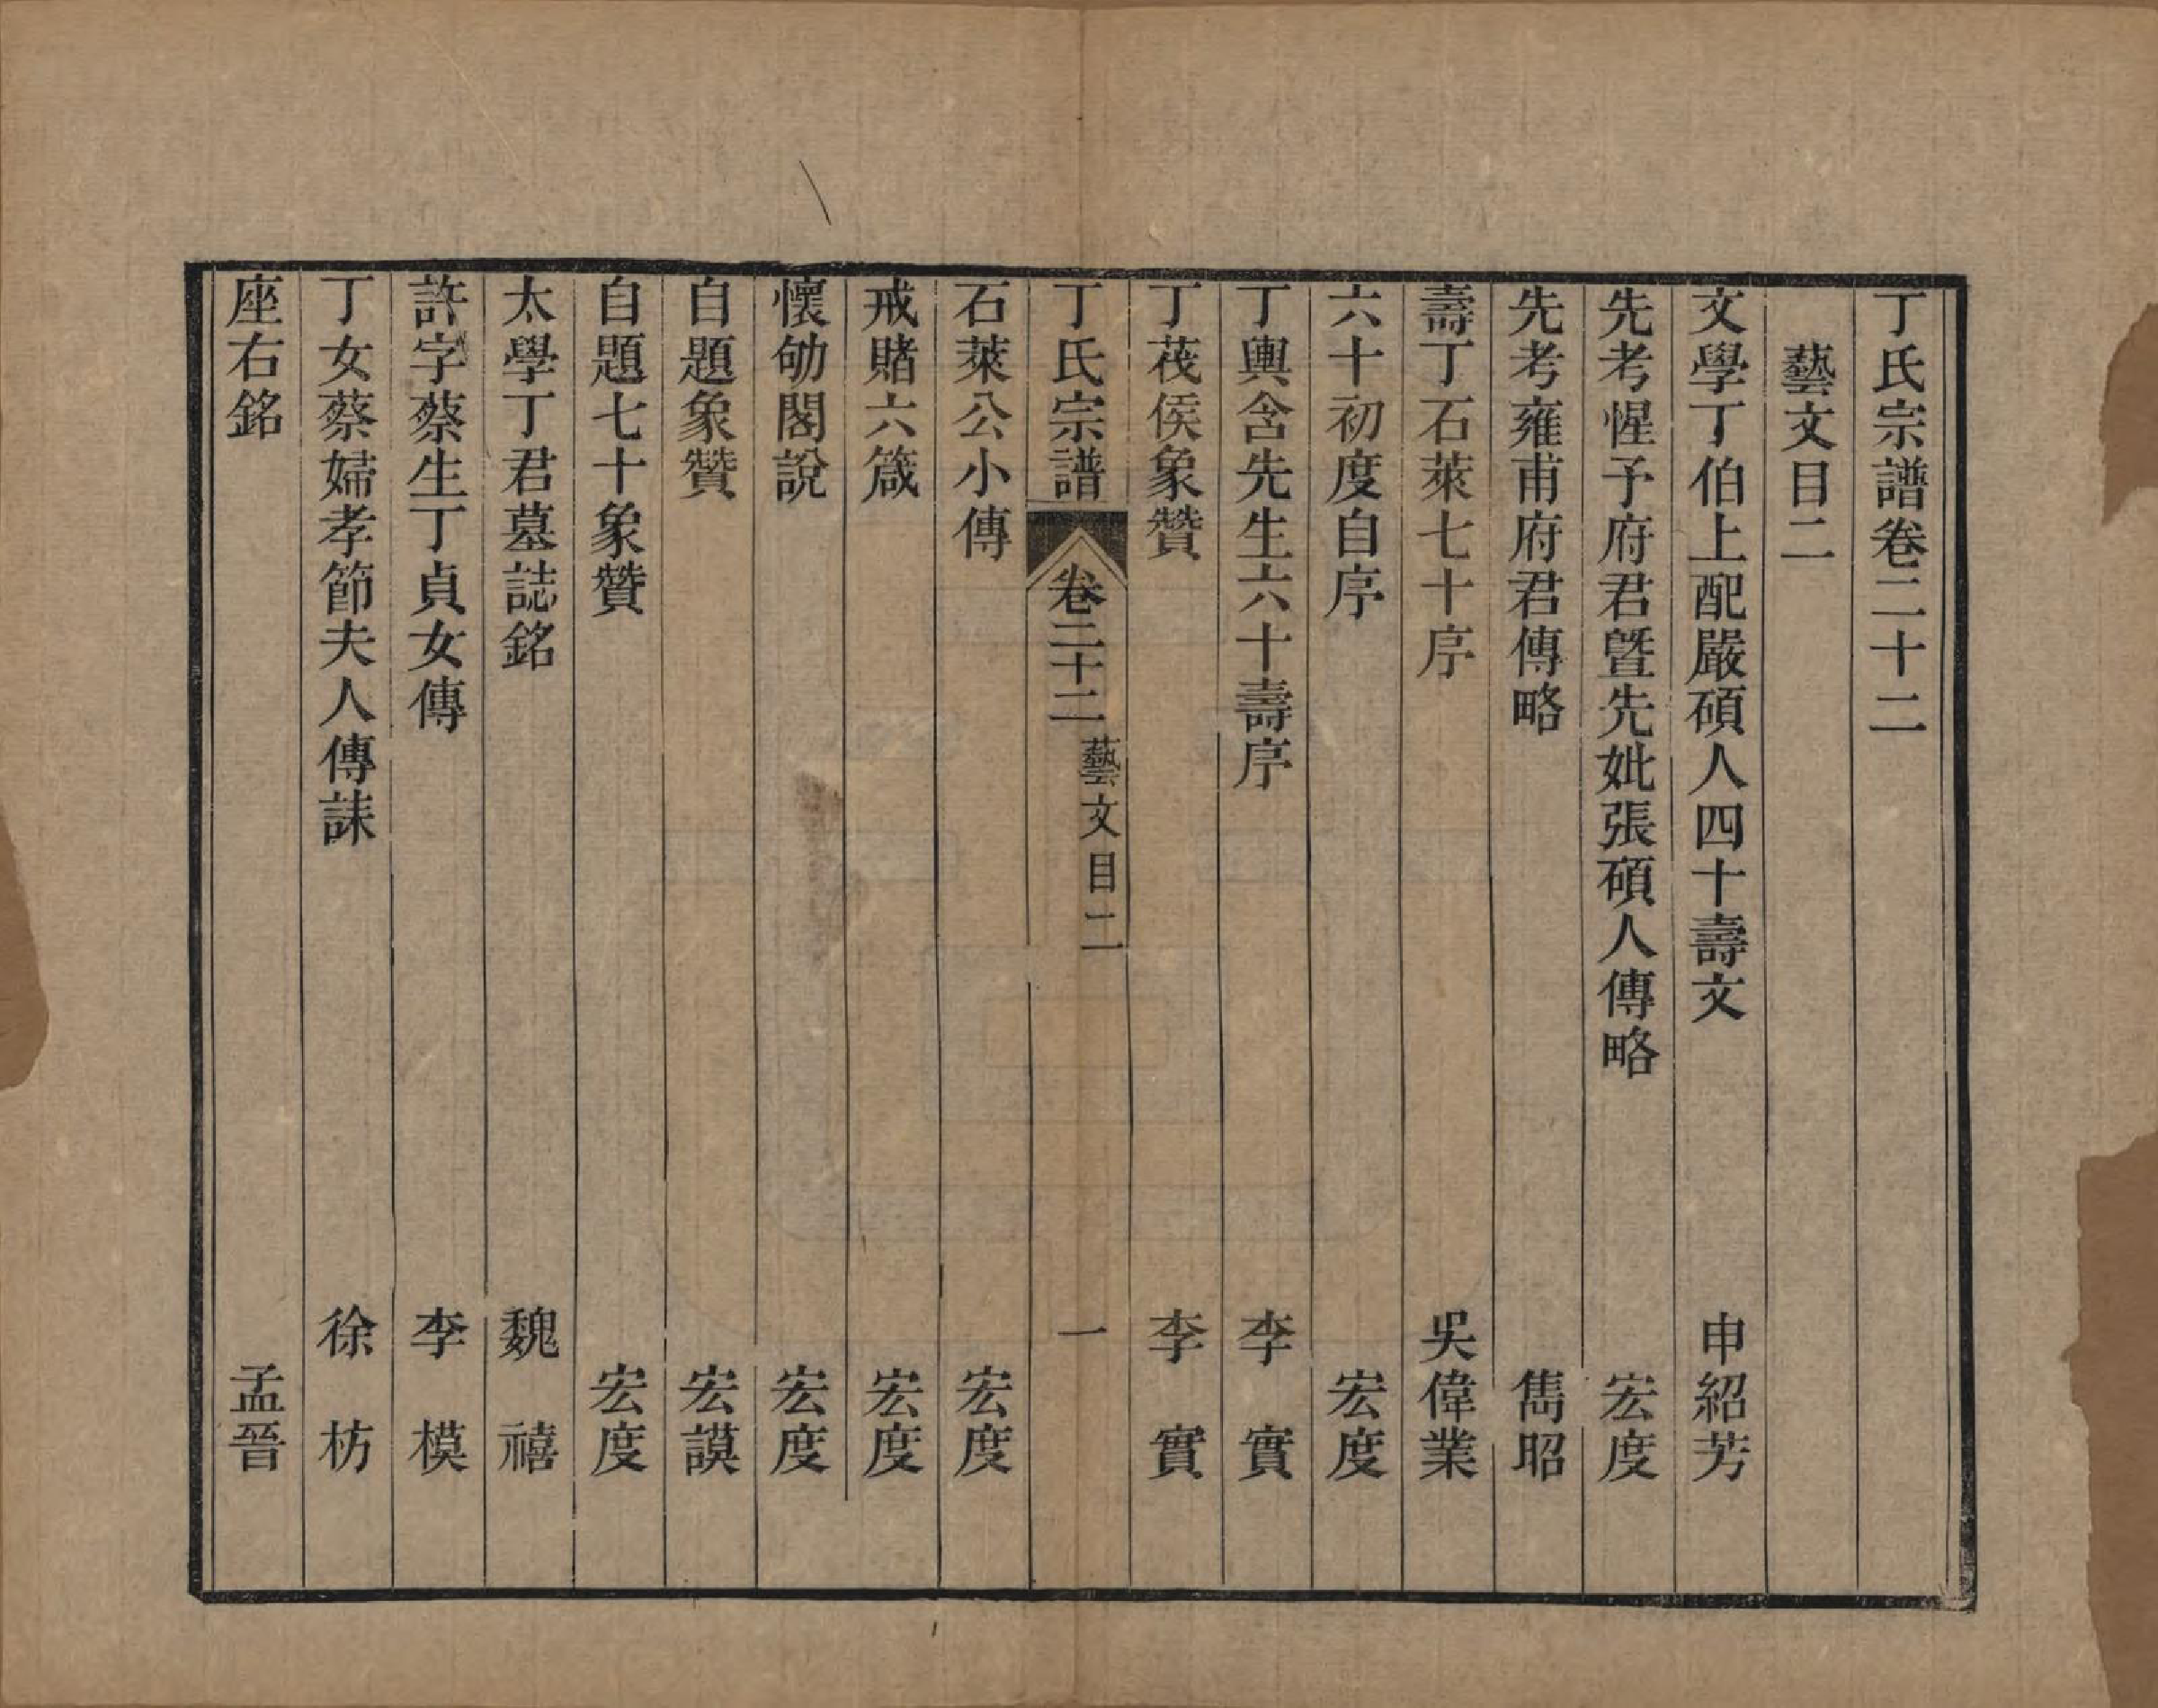 丁氏宗譜卷二十二
藝文目二
文學丁伯上配嚴碩人四十壽文　申紹芳
先考惺予府君曁先妣張碩人傳略　宏度
先考雍甫府君傳略　雋昭
壽丁石萊七十序　吳偉業
六十初度自序　宏度
丁輿含先生六十壽序　李實
丁茷侯象贊　李實
丁氏宗譜　卷二十二　藝文目二　一
石萊公小傳　宏度
戒賭六箴　宏度
懷劬閣說　宏度
自題象贊　宏謨
自題七十象贊　宏度
太學丁君墓誌銘　魏禧
許字蔡生丁貞女傳　李模
丁女蔡婦孝節夫人傳誄　徐枋
座右銘　孟晉